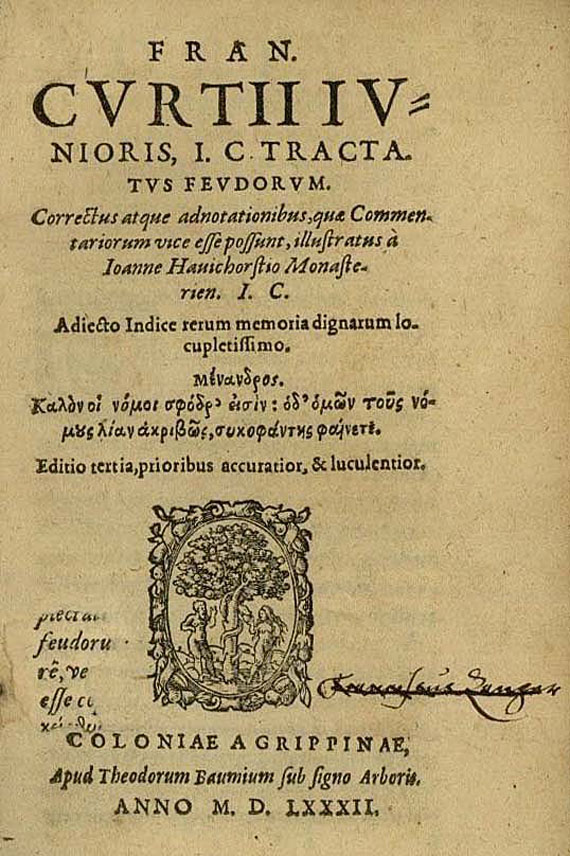 FRAN.
CVRTII IV-
NIORIS, I. C. TRACTA.
TVS FEVDORVM.
Correctus atque adnotationibus, quæ Commen-
tariorum vice esse possunt, illustratus à
Ioanne Hauichorstio Monaste-
rien. I. C.
Adiecto Indice rerum memoria dignarum lo-
cupletissimo.
Μένανδρος.
Καλὸν οἱ νόμοι σφόδρ' εἰσὶν: ὁδ' ὁμῶν τοὺς νό-
μους λίαν ἀκριβῶς, συκοφάντης φαίνετε.
Editio tertia, prioribus accuratior, & luculentior.
feudoru
rê, ve
esse
COLONIAE AGRIPPINAE,
Apud Theodorum Baumium sub signo Arboris.
ANNO M. D. LXXXII.